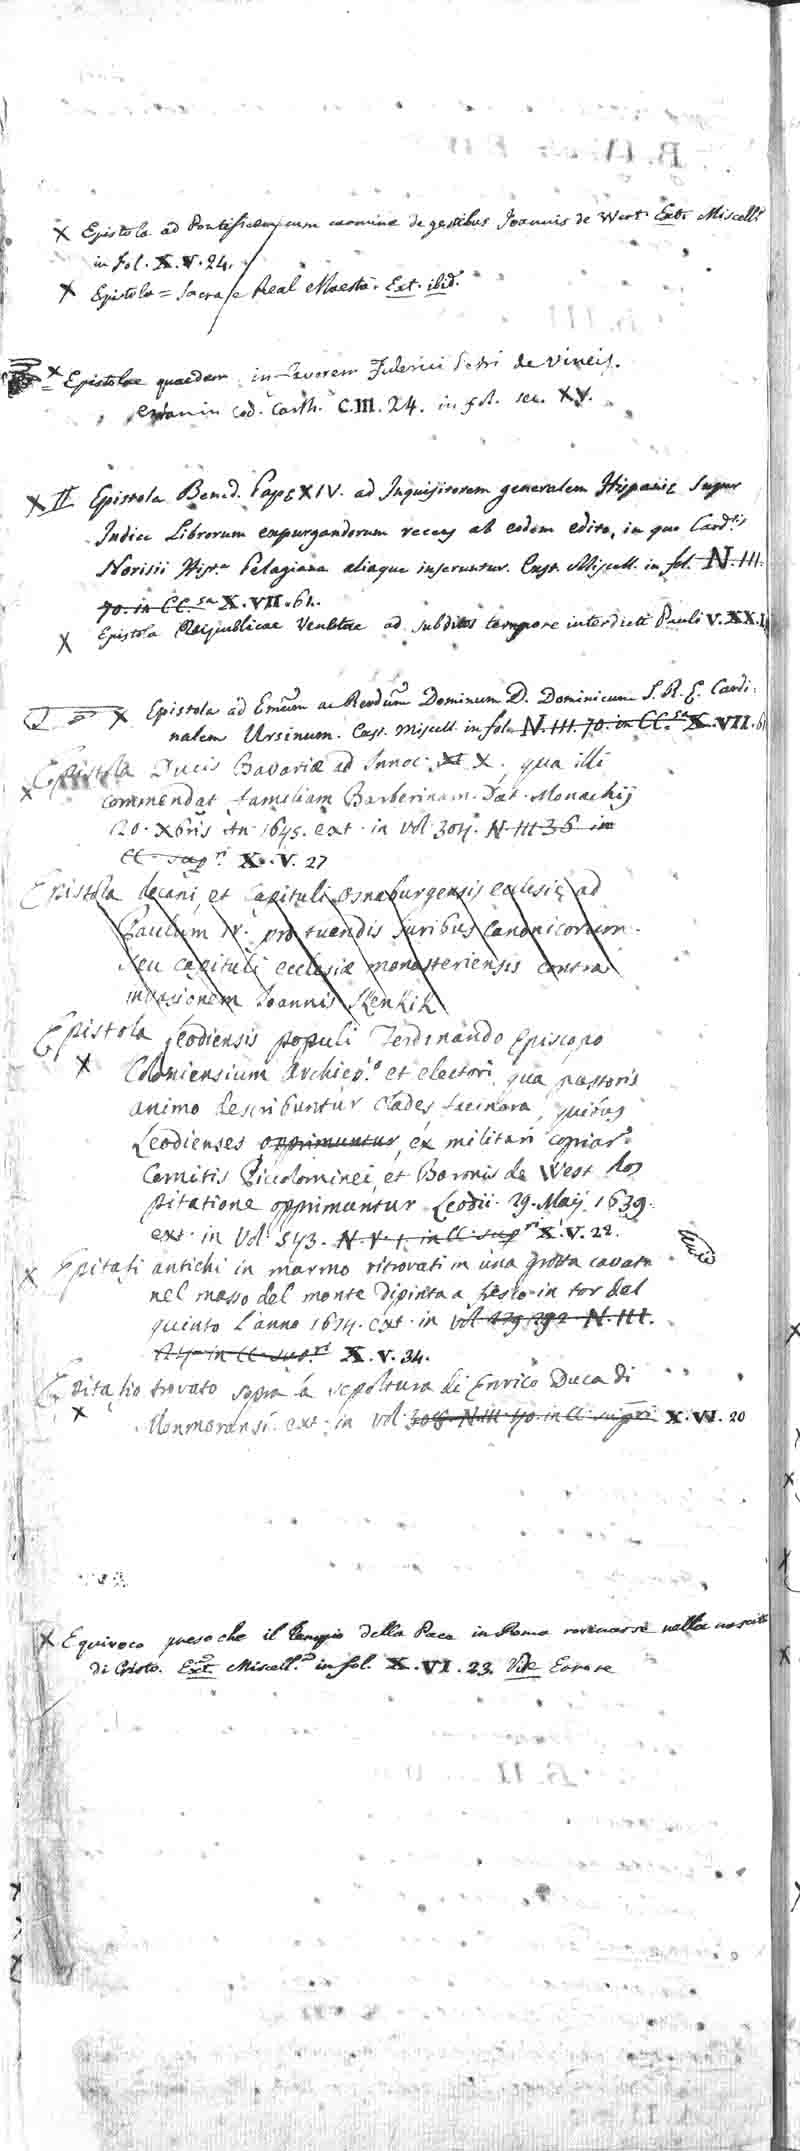 X Epistola ad Pontificem cum carmine de gestibus Joannis de Wert. Ext. Miscell.
in fol. X.V.24.
X Epistola = Sacra e Real Maestà. Ext. ibid.
X Epistolae quaedam in favorem Federici Petri de Vineis.
in Cod. Carth. C.III.24. in fol. sec. XV.
X II Epistola Bened. Papę XIV. ad Inquisitorem generalem Hispanię super
Indice Librorum expurgandorum recens ab eodem edito, in quo Card.lis
Norisii Hist.a Pelagiana aliaque inseruntur. Ext. Miscell. in fol. N.III.
70. in CC.sa X.VII.61.
X Epistola Reipublicae Venetae ad subditos tempore interdicti Pauli V.XX.
X Epistola ad Emum ac Rendum Dominum D. Dominicum S.R.E. Cardi:
nalem Ursinum. Ext. Miscell. in fol. N.III.70. in CC.sa X.VII.6
Epistola Ducis Bavariæ ad Innoc. XI X. qua illi
X commendat familiam Barberinam. Dat. Monachij
20. Xbris An. 1645. ext. in Vol. 304. N.III 36 in
CC. sup.ri X.V.27
Epistola decani, et Capituli Osnaburgensis ecclesię ad
Paulum IV. pro tuendis juribus Canonicorum.
seu capituli ecclesiæ monasteriensis contra
invasionem Joannis
Epistola Leodiensis populi Ferdinando Episcopo
X Coloniensium Archiep.o et electori, qua pastoris
animo describuntur clades facinora, quibus
Leodienses opprimuntur, ex militari copiar.
Comitis Piccolominei, et Baronis de West hos
pitatione opprimuntur Leodii. 29. Maij 1639.
ext. in Vol. 543. N.V.1. in CC. sup.ri X.V.22.
X Epitafi antichi in marmo ritrovati in una grotta cavata
nel masso del monte dipinta a fresco in tor del
quinto l'anno 1674. ext. in Vol. 279 292 N.III.
in CC. sup.ri X.V.34.
Epitafio trovato sopra la sepoltura di Enrico Duca di
X Monmoransi. ext. in Vol. N.III.40 in CC. supri X.VI.20
X Equivoco preso che il tempio della Pace in Roma rovinasse nella nascita
di Cristo. Ext. Miscell. in fol. X.VI.23. Vide Errore